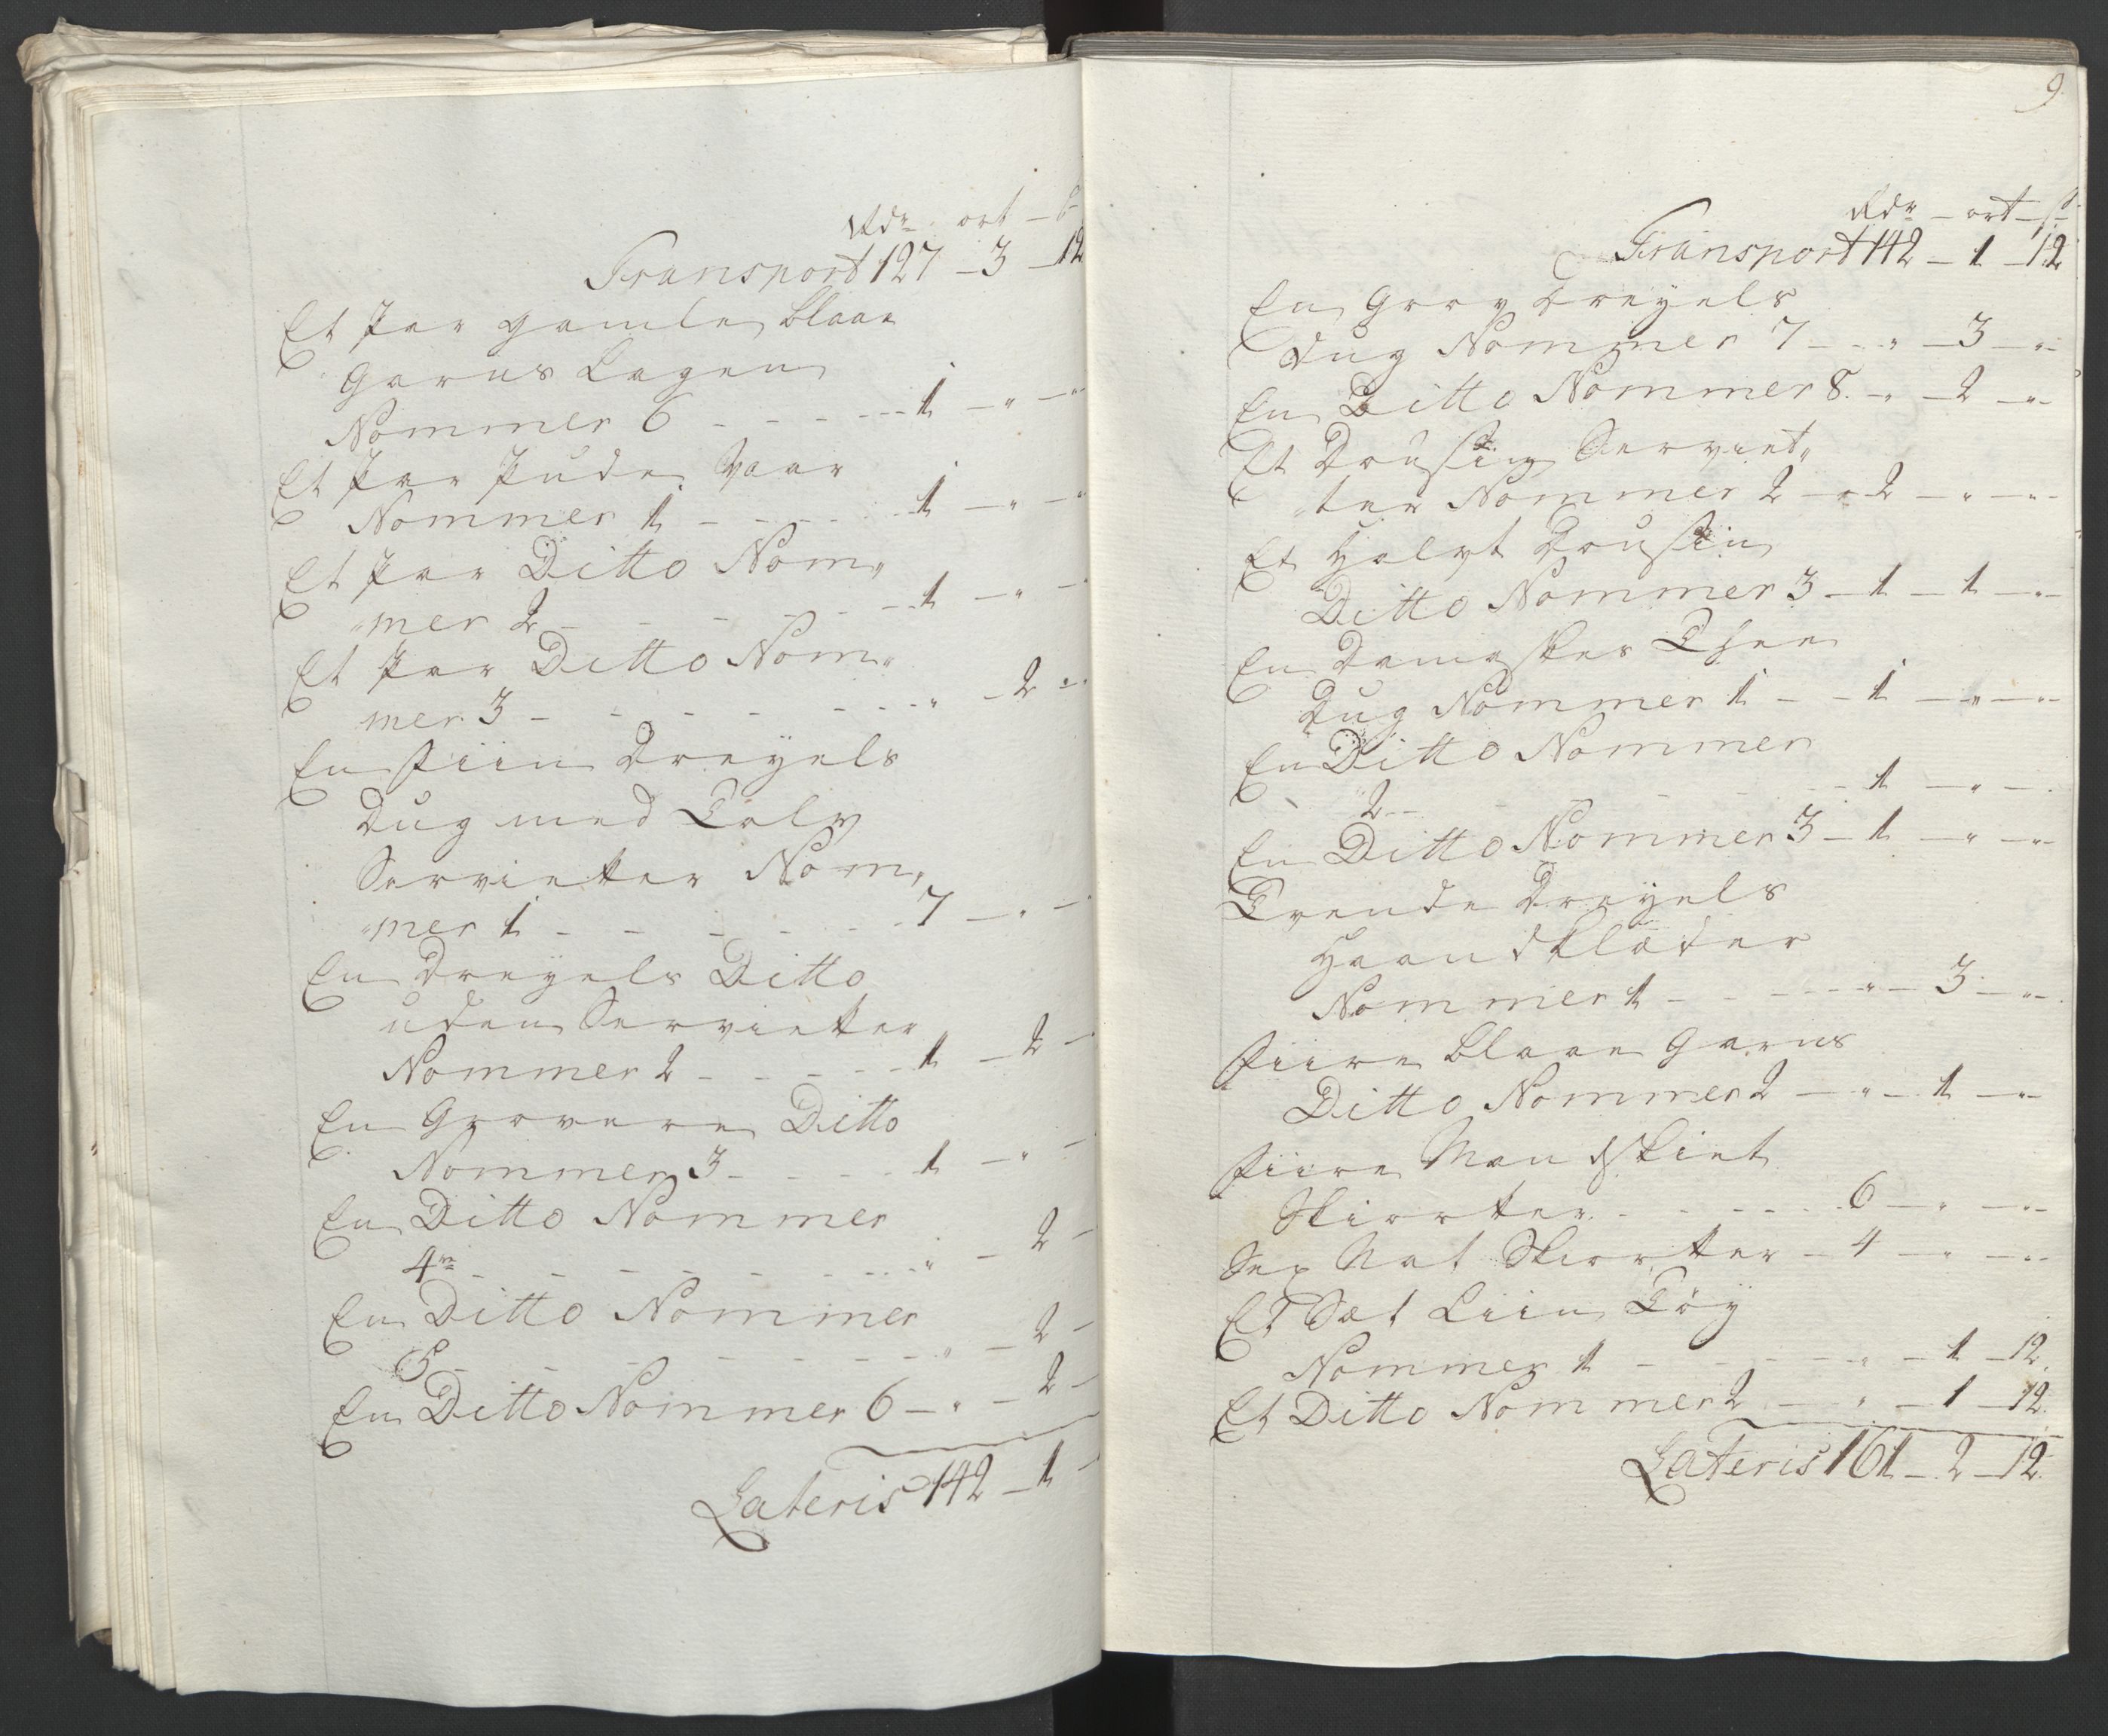 Rdr. ort – ß
Transport 127 – 3 – 12
Et Par gamle blaae
Garns Lagen
Nommer 6 - - - - - 1 – " – "
Et Par Pude Vaar
Nommer 1 - - - - - 1 – " – "
Et Par Ditto Nom„
„mer 2 - - - - - 1 – " –
Et Par Ditto Nom„
mer 3 - - - - - - " – 2 – "
En fiin Dreyels
Dug med Tolv
Servietter Nom„
„mer 1 - - - - - 7 – " –
En Dreyels Ditto
uden Servietter
Nommer 2 - - - - - 1 – 2 –
En Grovere Ditto
Nommer 3 - - - - 1 – " –
En Ditto Nommer
4re - - - - - - " – 2 –
En Ditto Nommer
5 - - - - - - " – 2 –
En Ditto Nommer 6 – " – 2 –
Lateris 142 – 1 –
9.
Rdr – ort – ß
Transport 142 – 1 – 12
En Grov Dreyels
Dug Nommer 7 - - " – 3 – "
En Ditto Nommer 8 - " – 2 – "
Et Dousin Serviet„
„ter Nommer 2 – 2 – " – "
Et Halvt Dousin
Ditto Nommer 3 – 1 – 1 – "
En Damaskes Thee
Dug Nommer 1 - - 1 – " – "
En Ditto Nommer
2 - - - - - 1 – " –
En Ditto Nommer 3 – 1 – " – "
Trende Dreyels
Haandklæder
Nommer 1 - - - - " – 3 – "
Fiire blaae Garns
Ditto Nommer 2 – " – 1 – "
Fiire Mandskiet
Skiorter - - - - - 6 – " – "
Sex Nat Skiorter – 4 – " – "
Et Sæt Liin Tøy
Nommer 1 - - - - " – 1 – 12.
Et Ditto Nommer 2 – " – 1 – 12.
Lateris 161 – 2 – 12.